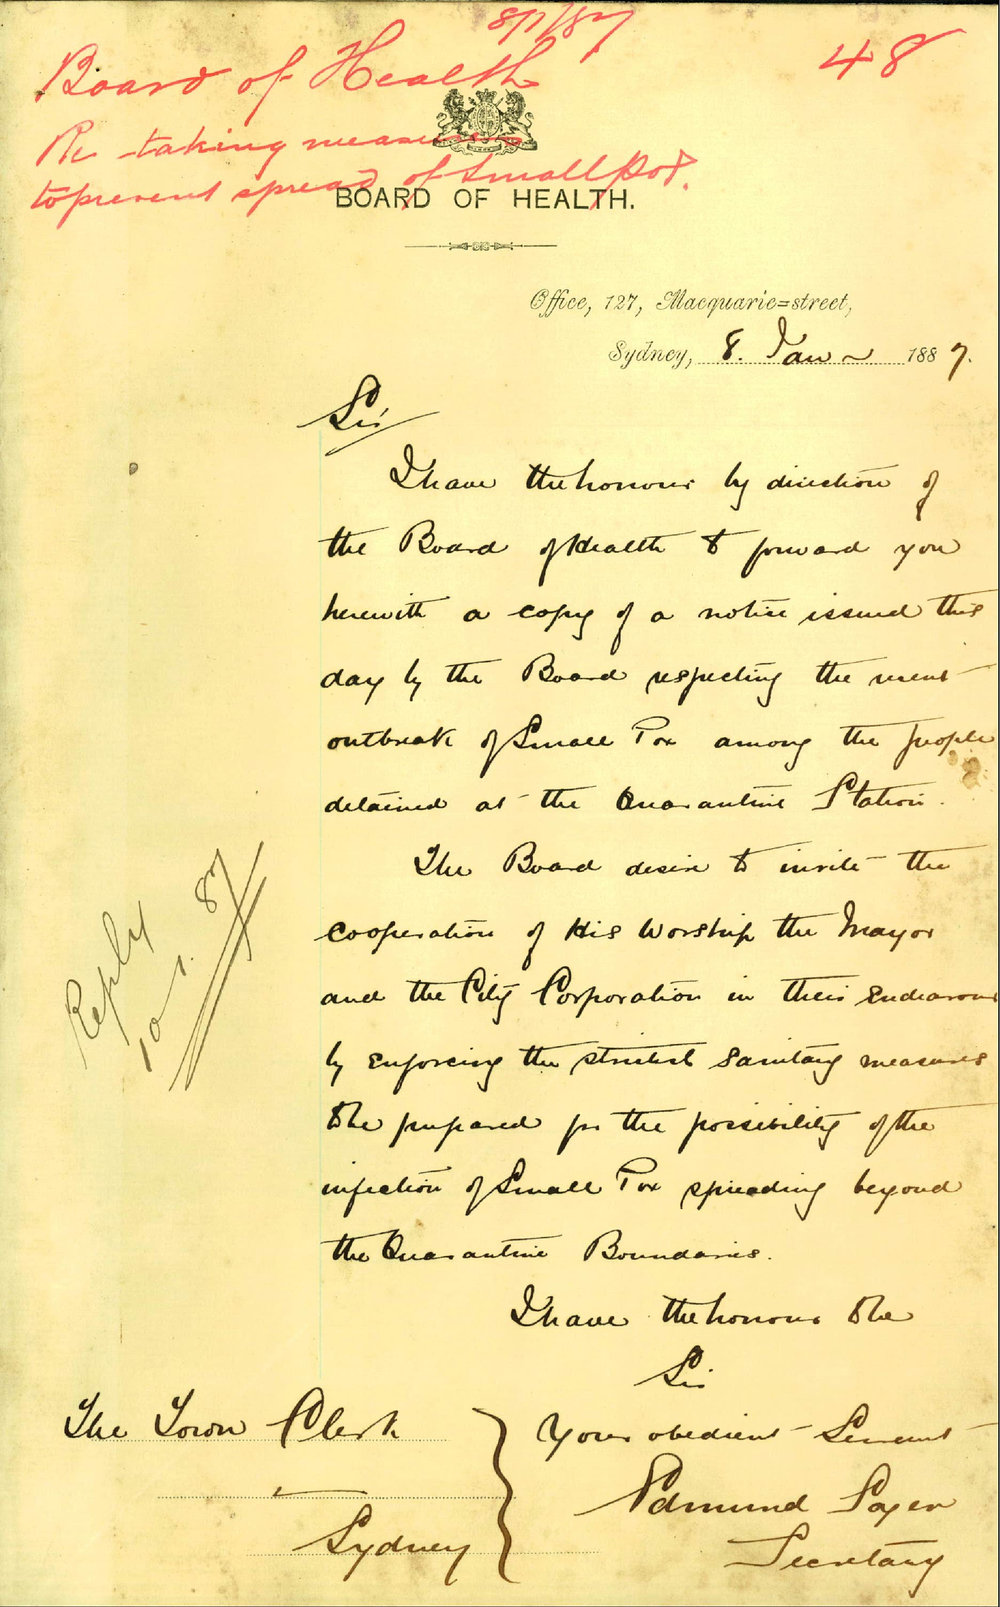 8/1/87
48
Board of Health
Re taking measures
to prevent spread of Small Pox.
BOARD OF HEALTH.
Office, 127, Macquarie=street,
Sydney, 8. Jan 1887.
Sir
I have the honour by direction of
the Board of Health to forward you
herewith a copy of a notice issued this
day by the Board respecting the recent
outbreak of Small Pox among the people
detained at the Quarantine Station.
The Board desire to invite the
cooperation of His Worship the Mayor
and the City Corporation in their Endeavour
by Enforcing the strictest Sanitary measures
to be prepared for the possibility of the
infection of Small Pox spreading beyond
the Quarantine Boundaries.
Reply
10. 1. 87
I have the honour to be
Sir
Your obedient Servant
Edmund Sager
Secretary
The Town Clerk
Sydney